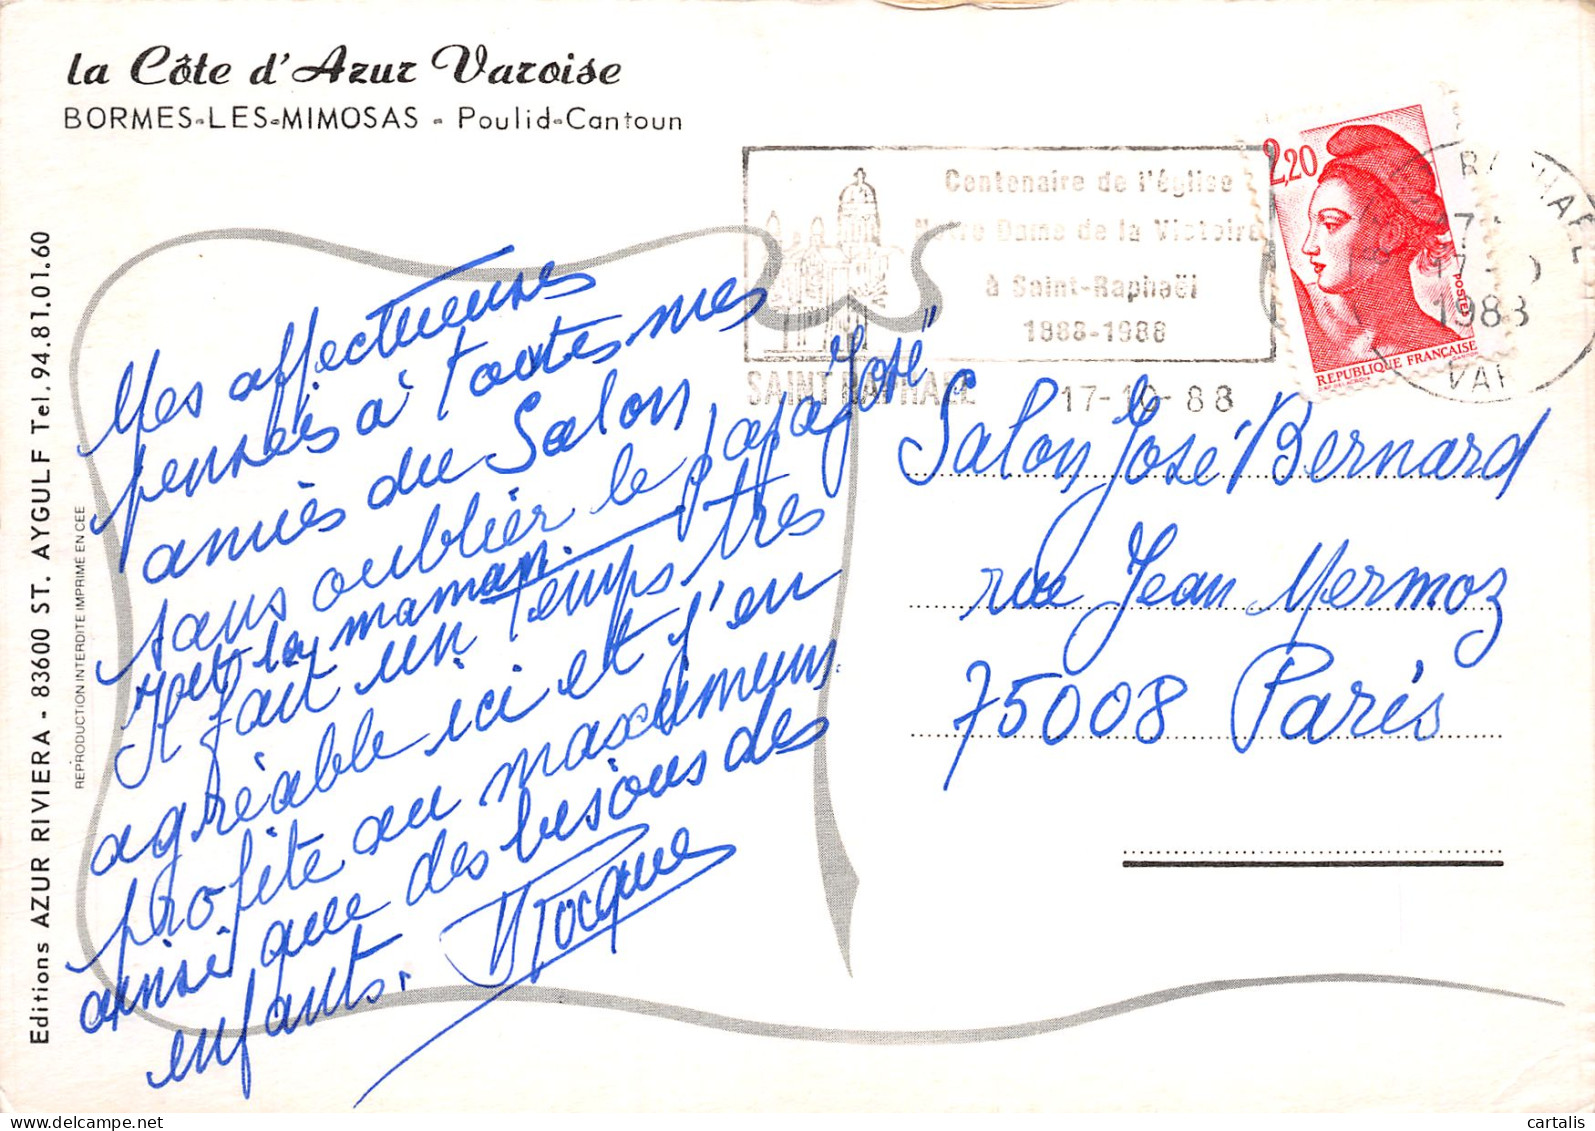 la Côte d'Azur Varoise
BORMES-LES-MIMOSAS - Poulid-Cantoun
Centenaire de l'église
Notre Dame de la Victoire
à Saint-Raphaël
1888-1988
SAINT RAPHAEL
17-10-88
2,20
POSTES
REPUBLIQUE FRANÇAISE
RAPHAEL
17-
1988
VAR
Mes affectueuses
pensées à toutes mes
amies du Salon,
sans oublier le papa "José"
et la maman.
Il fait un temps très
agréable ici et j'en
profite au maximum
ainsi que des besoins des
enfants.
Salon José Bernard
rue Jean Mermoz
75008 Paris
Editions AZUR RIVIERA - 83600 ST. AYGULF Tel. 94.81.01.60
REPRODUCTION INTERDITE IMPRIME EN CEE
cartalis